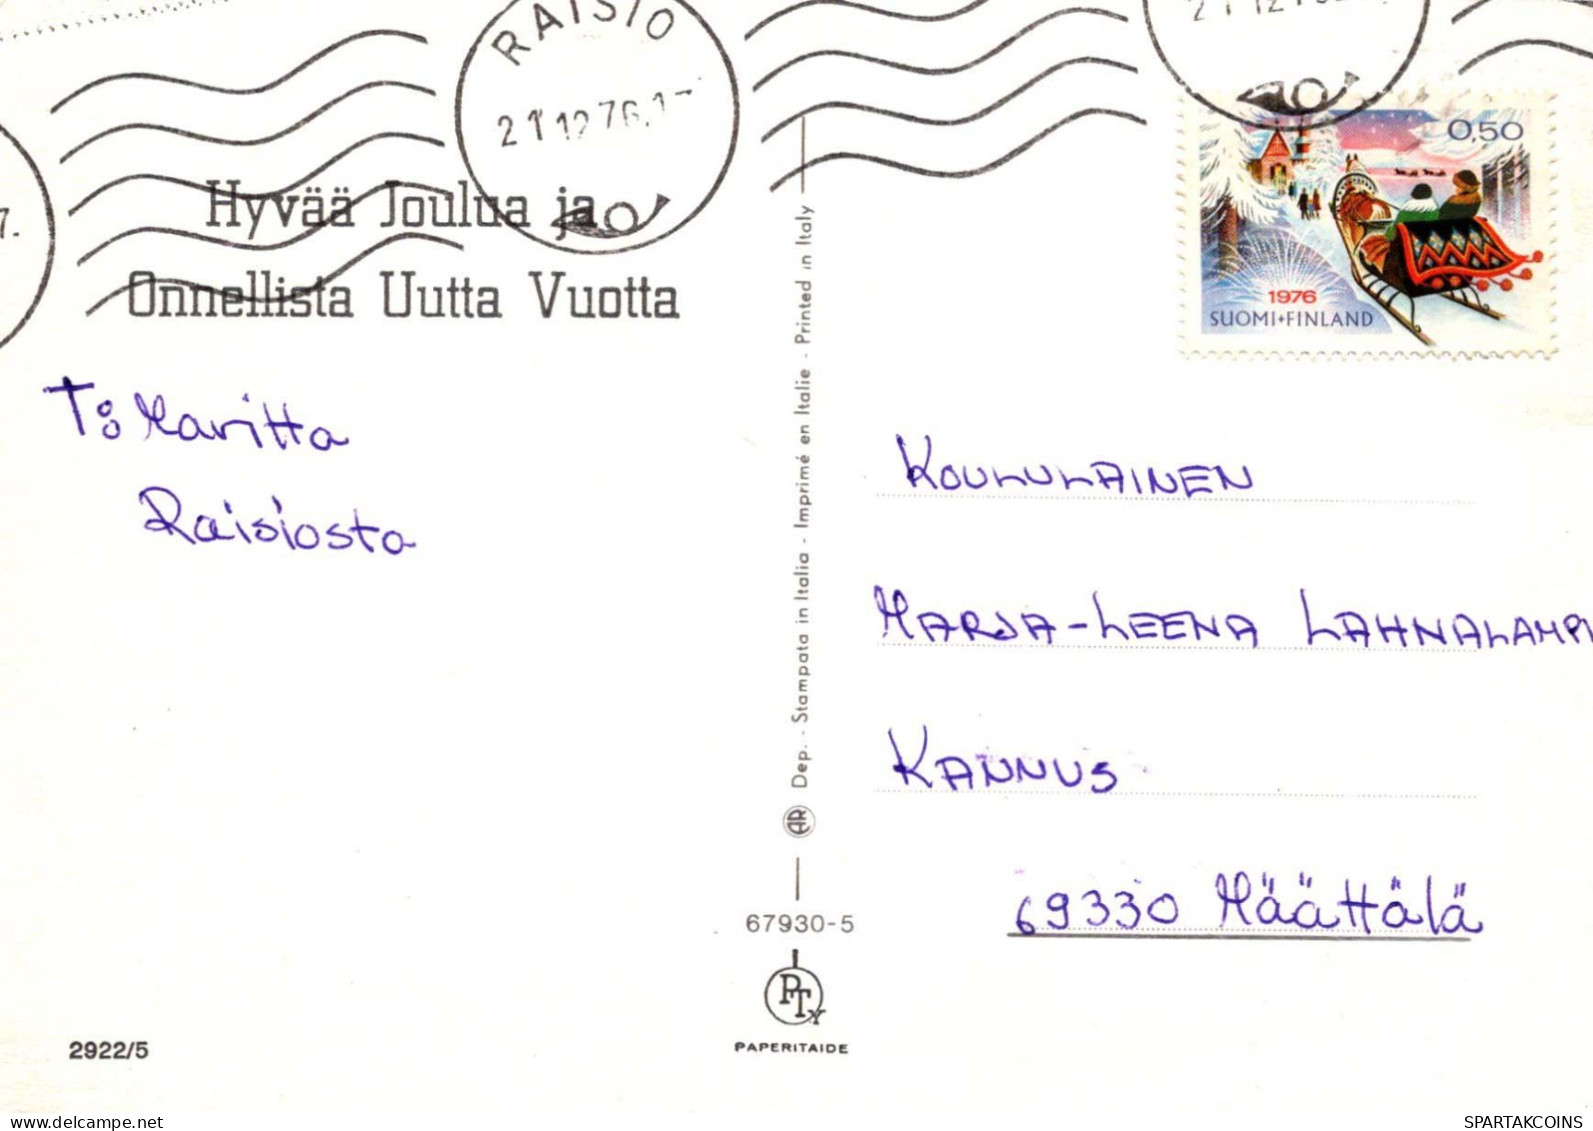 RAISIO
21.12.76.17
21.12.76
7.
0,50
1976
SUOMI+FINLAND
Hyvää Joulua ja
Onnellista Uutta Vuotta
T: Maritta
Raisiosta
Dep. - Stampata in Italia - Imprimé en Italie - Printed in Italy
AR
67930-5
PTY
PAPERITAIDE
KOULULAINEN
MARJA-LEENA LAHNALAMPI
KANNUS
69330 Määttälä
2922/5
delcampe.net
SPARTAKCOINS